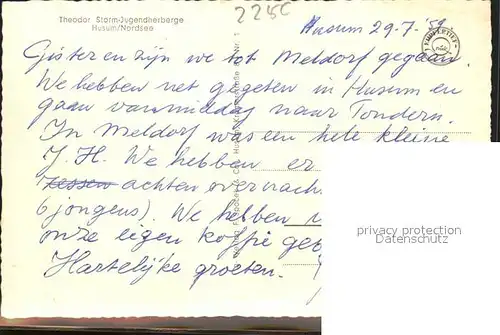 Theodor Storm-Jugendherberge
Husum/Nordsee
225C
Husum 29-7-'59.
Gisteren zijn we tot Meldorf gegaan.
We hebben net gegeten in Husum en
gaan vanmiddag naar Tondern.
In Meldorf was een hele kleine
J. H. We hebben er
achten overnach
6 jongens). We hebben
onze eigen koffie
Hartelijke groeten.
privacy protection
Datenschutz